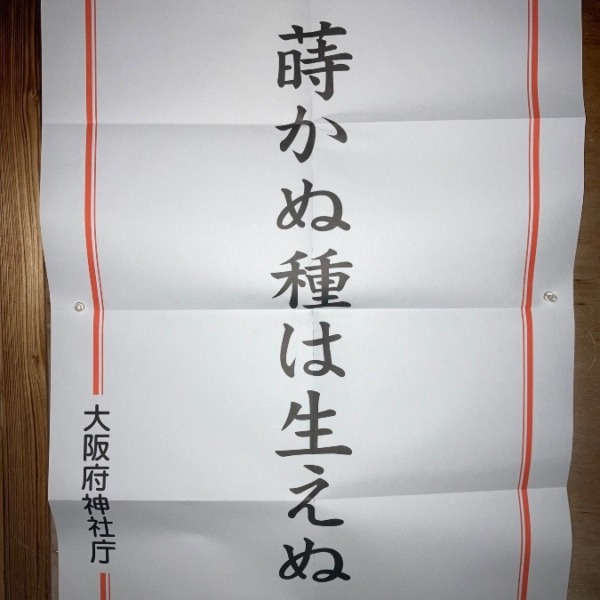 蒔かぬ種は生えぬ
大阪府神社庁